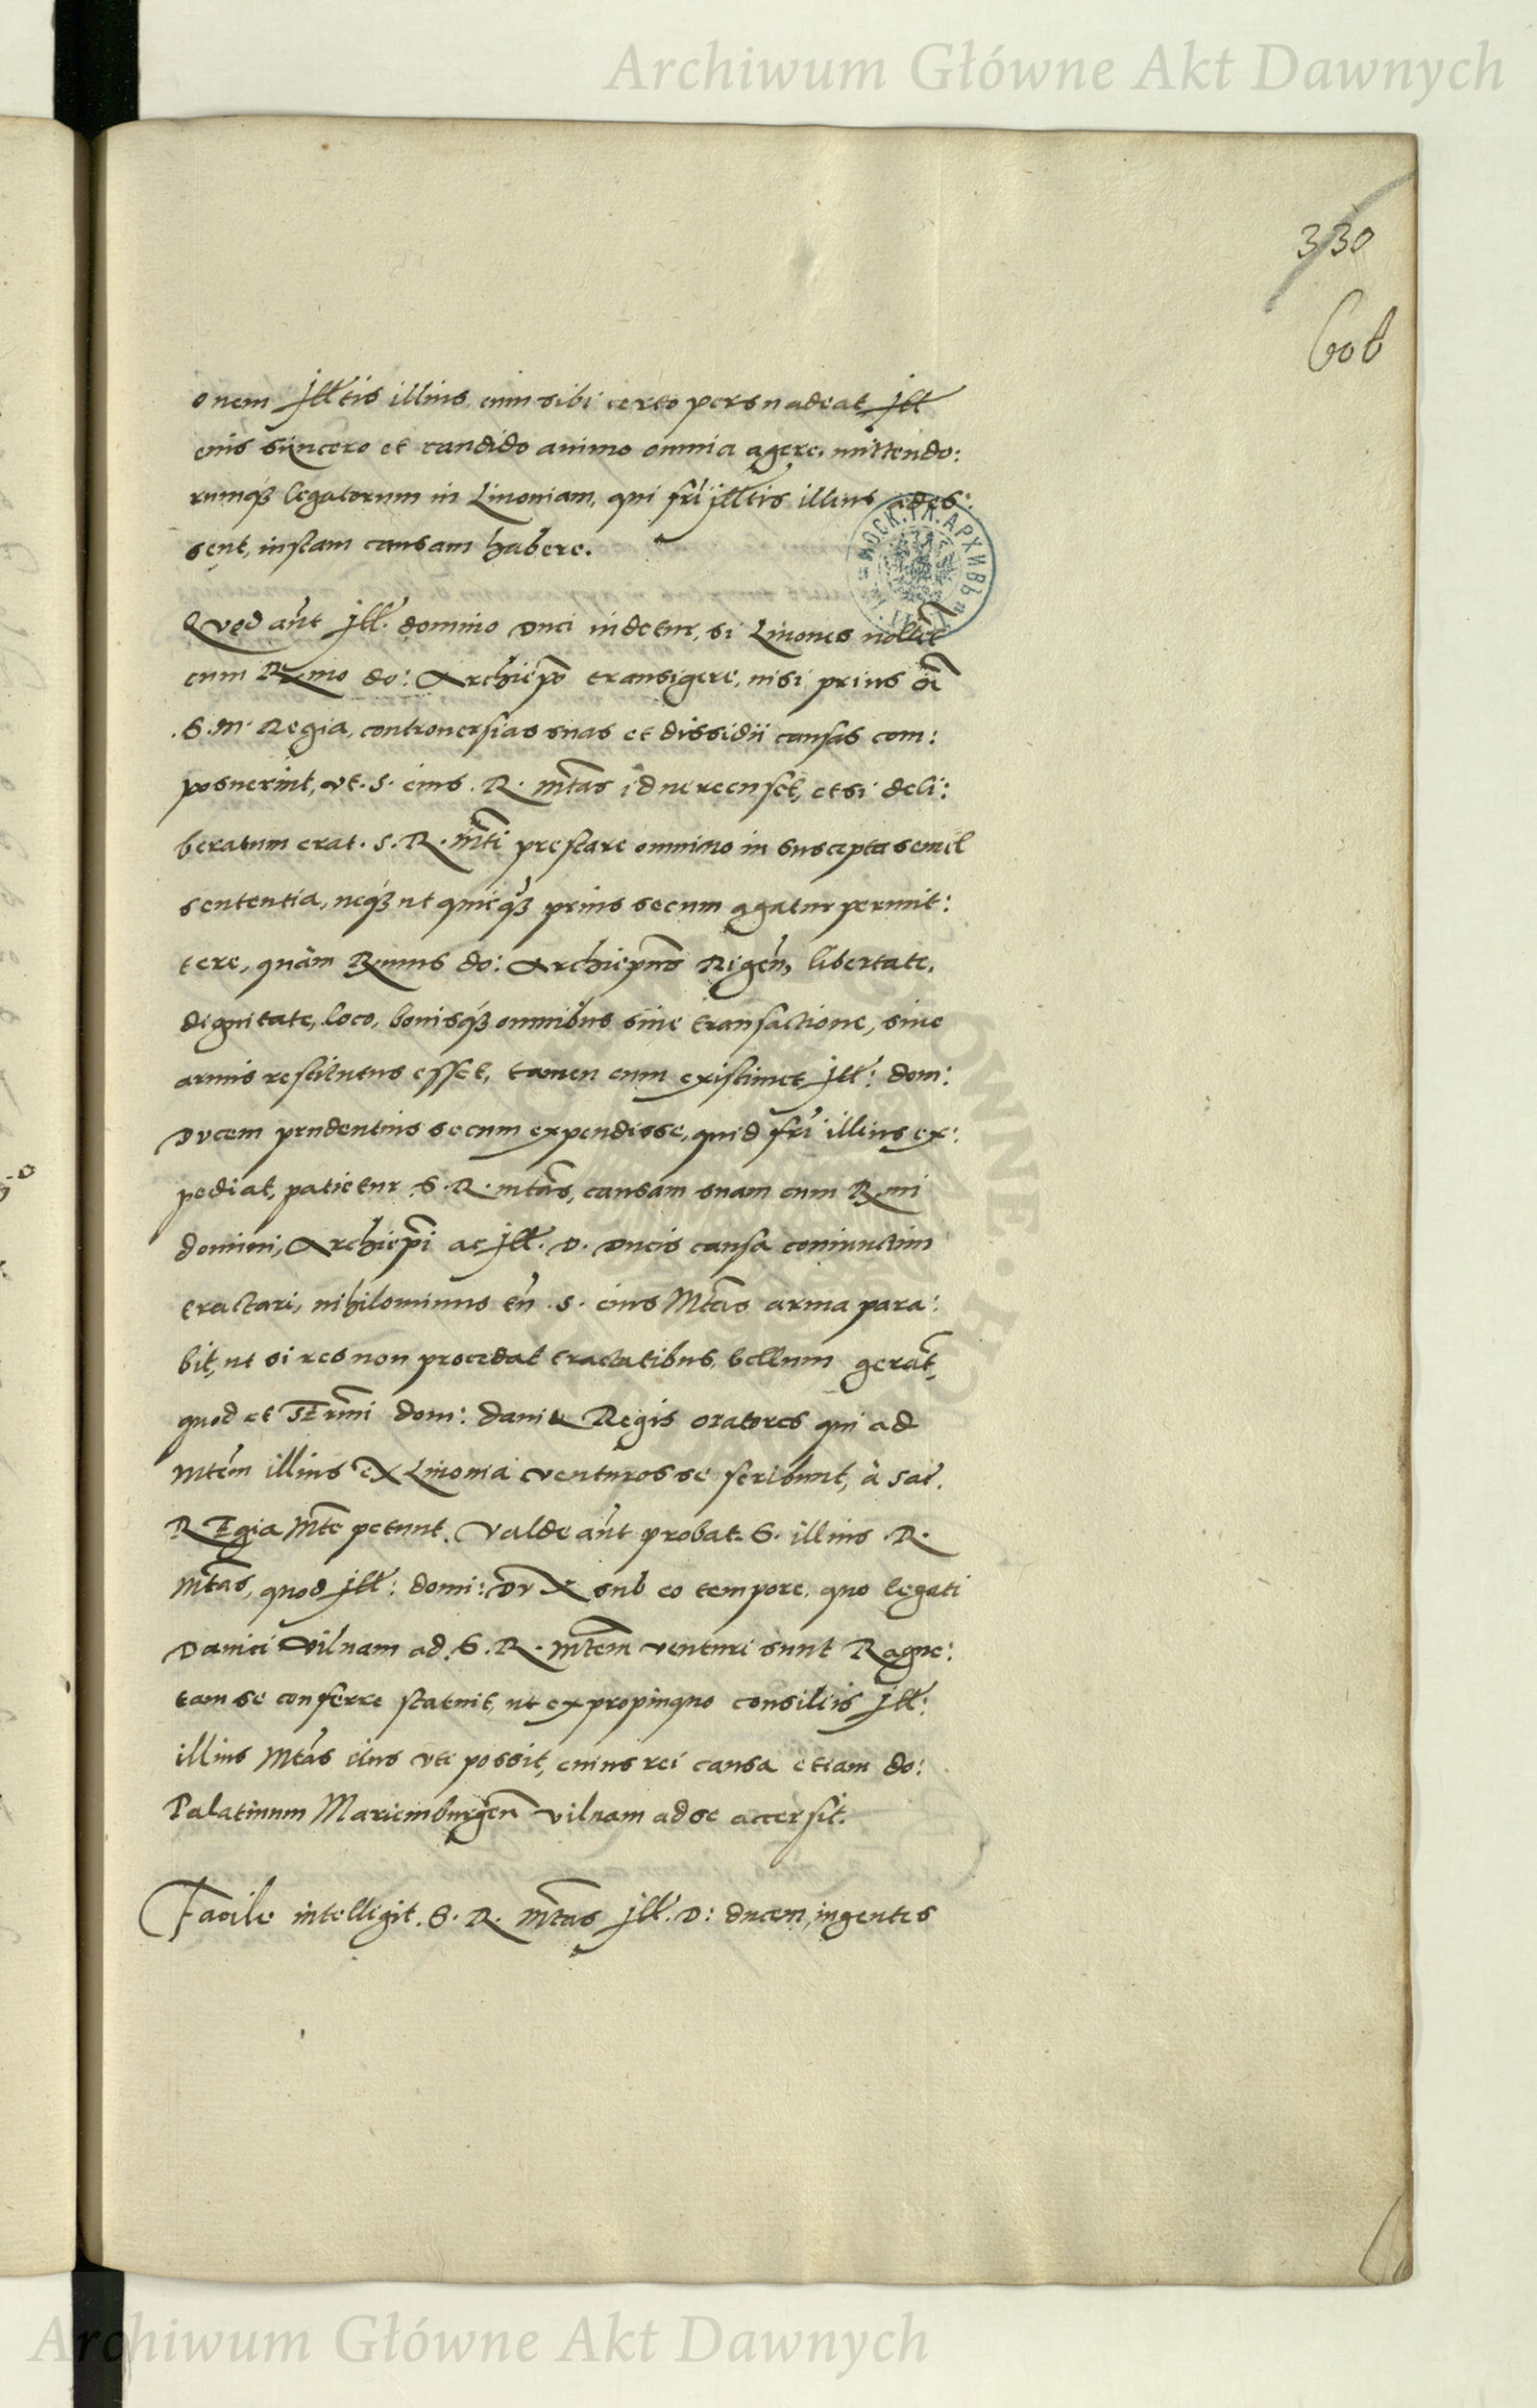 Archiwum Główne Akt Dawnych
330
606
onem Jlltis illius, cum sibi certo persuadeat Jll
eius sincero et candido animo omnia agere, mittendo:
rumqꝫ legatorum in Liuoniam, qui fri Jlltis illius ades:
sent, iustam causam habere.
МОСК. ГЛ. АРХИВЪ
Quod aut Jll. domino Duci uidetur, si Liuones nollet
cum Rmo do: Archiepo transigere, nisi prius
.S. M. Regia, controuersias suas et dissidii causas com:
posuerint, vt. S. eius. R. mtas id ne recuset, etsi deli:
beratum erat. S. R. mti prestare omnino in suscepta semel
sententia, neqꝫ ut quicqꝫ prius secum agatur permit:
tere, quàm Rmus do: Archiepus Rigen, libertate,
dignitate, loco, bonisqꝫ omnibus siue transactione, siue
armis restitutus esset, tamen cum existimet Jll: dom:
Ducem prudentius secum expendisse, quid fri illius ex:
pediat, patietur S. R. mtas, causam suam cum Rmi
domini, Archiepi ac Jll. D. Ducis causa coniunctim
tractari, nihilominus tn. S. eius Mtas arma para:
bit, ut si res non procedat tractatibus, bellum gerat,
quod et Sermi dom: Daniæ Regis oratores qui ad
Mtem illius ex Liuonia venturos se scribunt, à Sac.
Regia Mte petunt. Valde aut probat S. illius. R.
Mtas, quod Jll: domi: Dux sub eo tempore, quo legati
Danici Vilnam ad. S. R. Mtem venturi sunt Ragne:
tam se conferre statuit, ut ex propinquo consiliis Jll:
illius Mtas eius vti possit, cuius rei causa etiam do:
Palatinum Mariemburgen Vilnam ad se accersit.
Facile intelligit. S. R. Mtas Jll. D: ducem, ingentes
Archiwum Główne Akt Dawnych